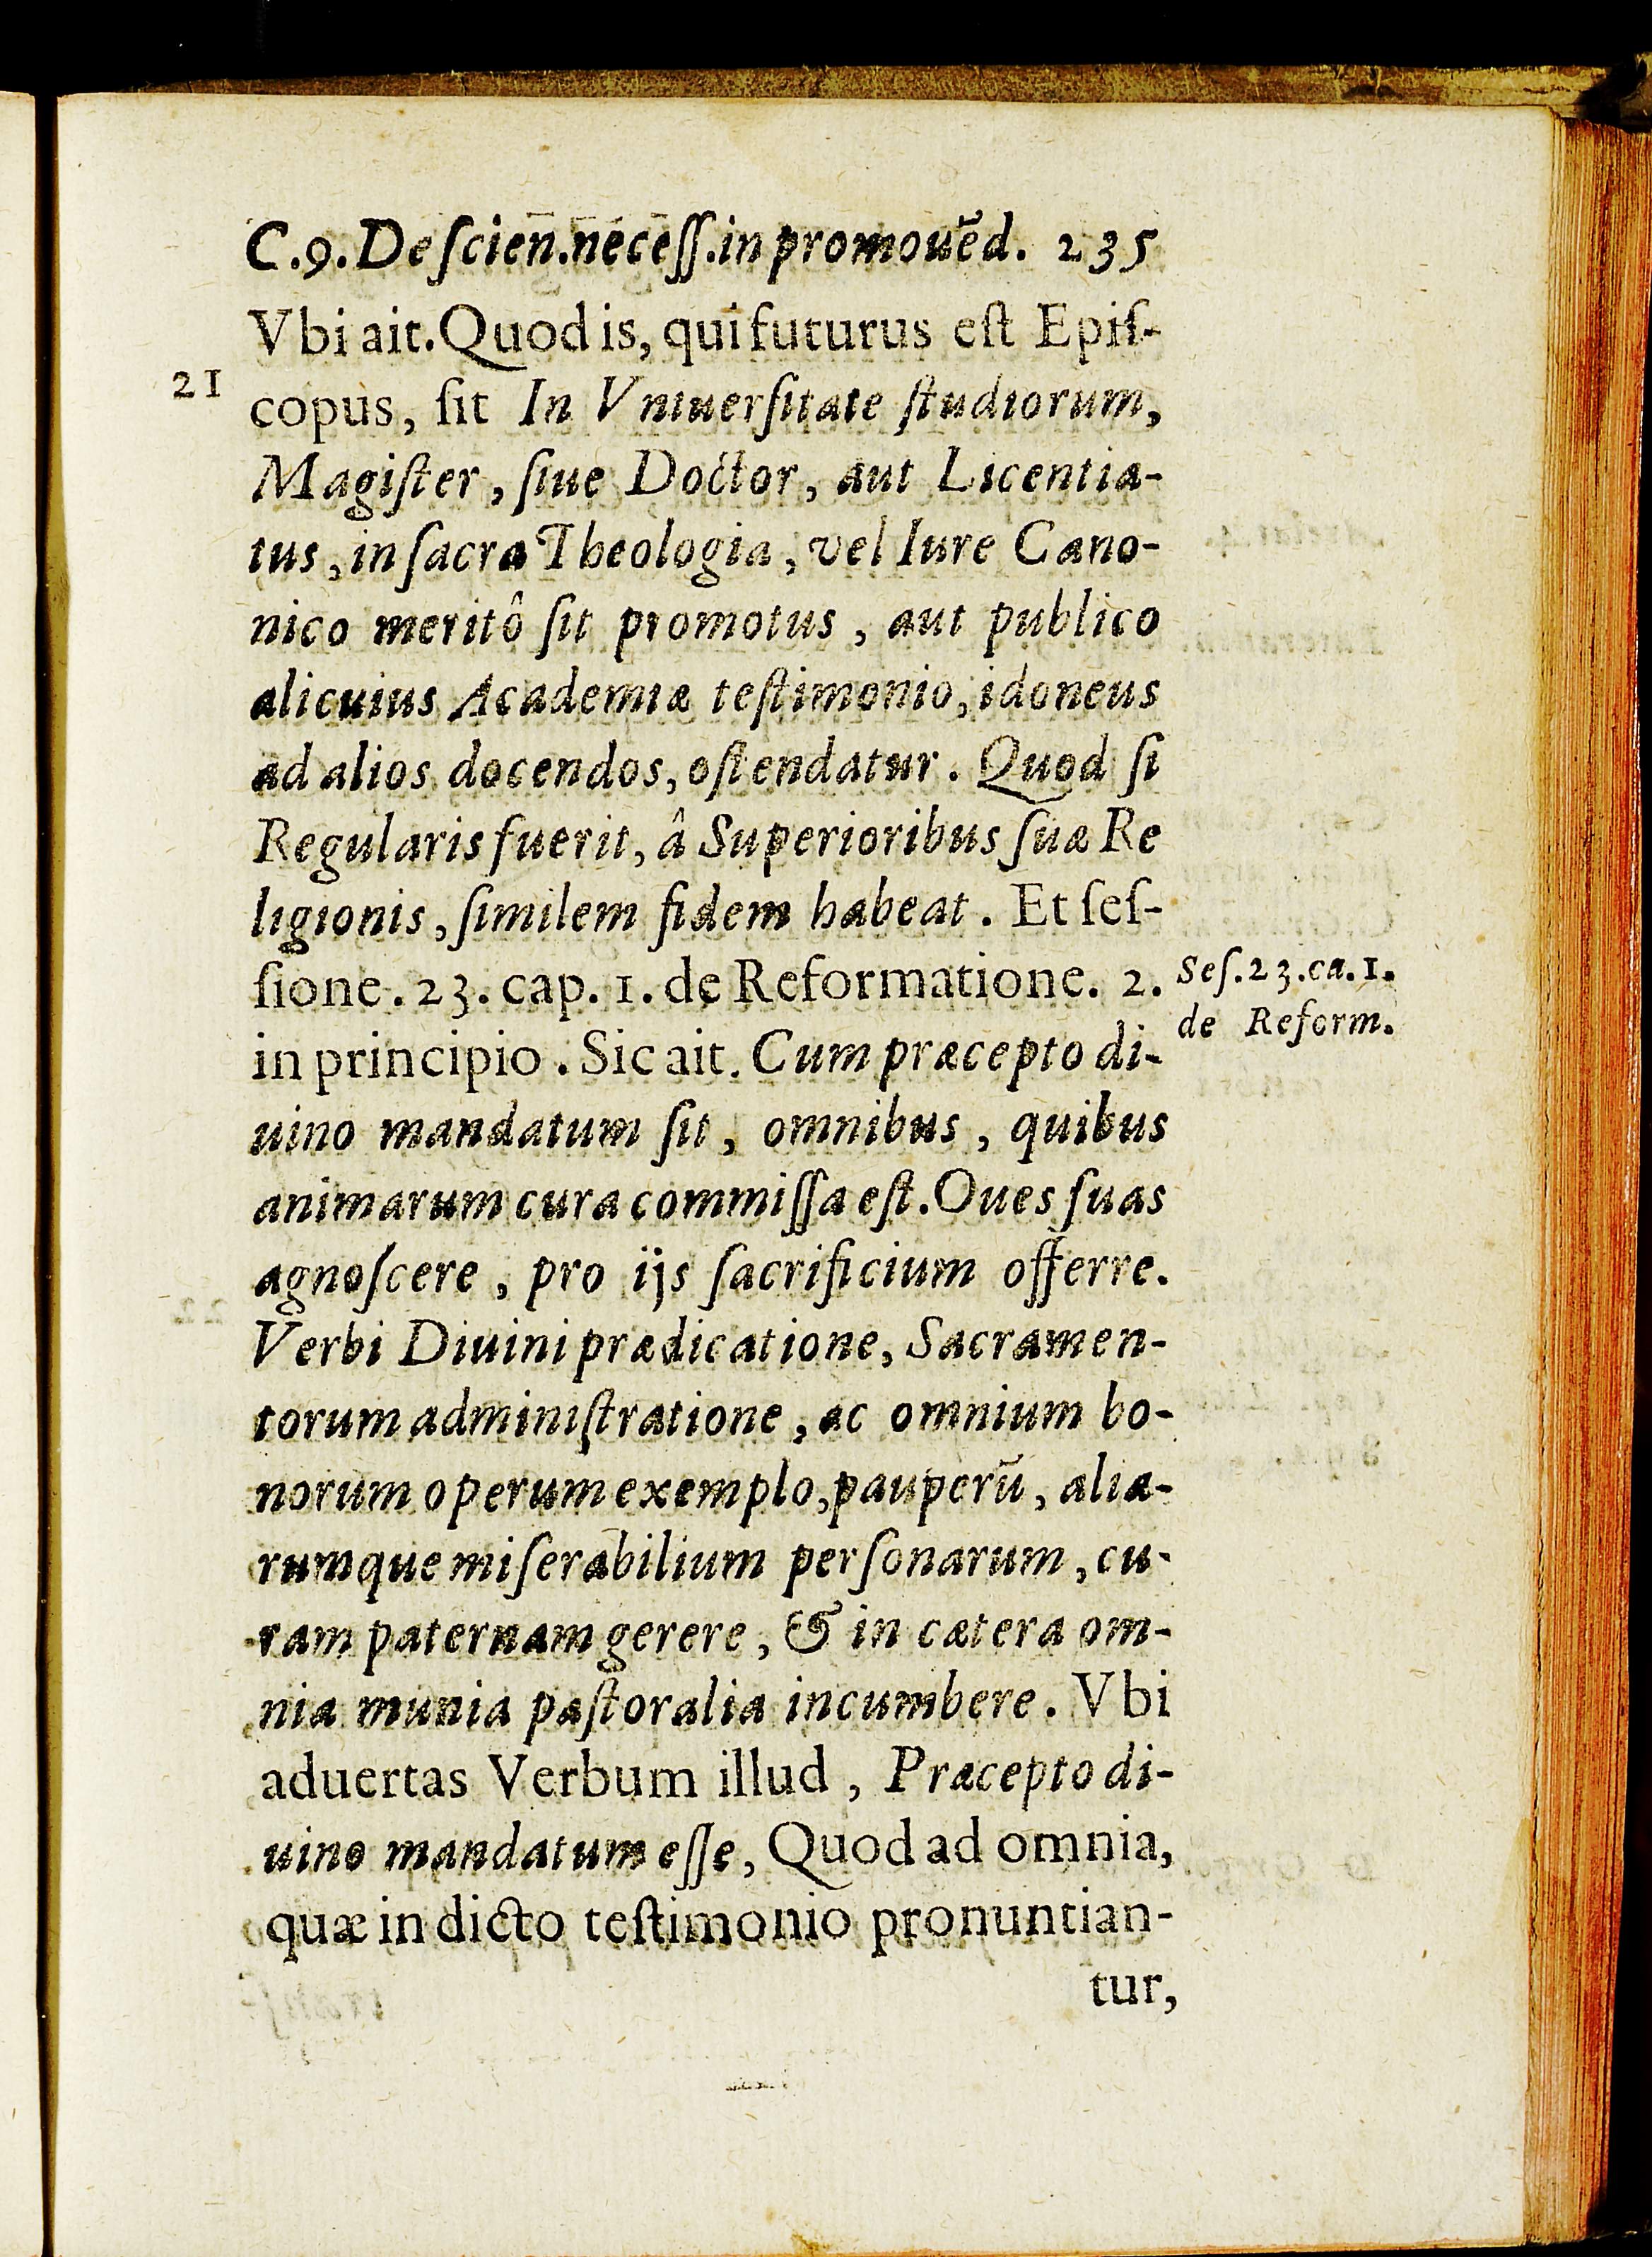 C.9. De ſcien̄. neceſſ. in promouēd. 235
Vbi ait. Quod is, qui futurus eſt Epiſ-
21
copus, ſit In Vniuerſitate ſtudiorum,
Magiſter, ſiue Doctor, aut Licentia-
tus, in ſacra Theologia, vel Iure Cano-
nico meritô ſit promotus, aut publico
alicuius Academiæ teſtimonio, idoneus
ad alios docendos, oſtendatur. Quod ſi
Regularis fuerit, â Superioribus ſuæ Re
ligionis, ſimilem fidem habeat. Et ſeſ-
ſione. 23. cap. 1. de Reformatione. 2.
Seſ. 23. ca. 1.
de Reform.
in principio. Sic ait. Cum præcepto di-
uino mandatum ſit, omnibus, quibus
animarum cura commiſſa eſt. Oues ſuas
agnoſcere, pro ijs ſacrificium offerre.
Verbi Diuini prædicatione, Sacramen-
torum adminiſtratione, ac omnium bo-
norum operum exemplo, pauperū, alia-
rumque miſerabilium perſonarum, cu-
ram paternam gerere, & in cætera om-
nia munia paſtoralia incumbere. Vbi
aduertas Verbum illud, Præcepto di-
uino mandatum eſſe, Quod ad omnia,
quæ in dicto teſtimonio pronuntian-
tur,